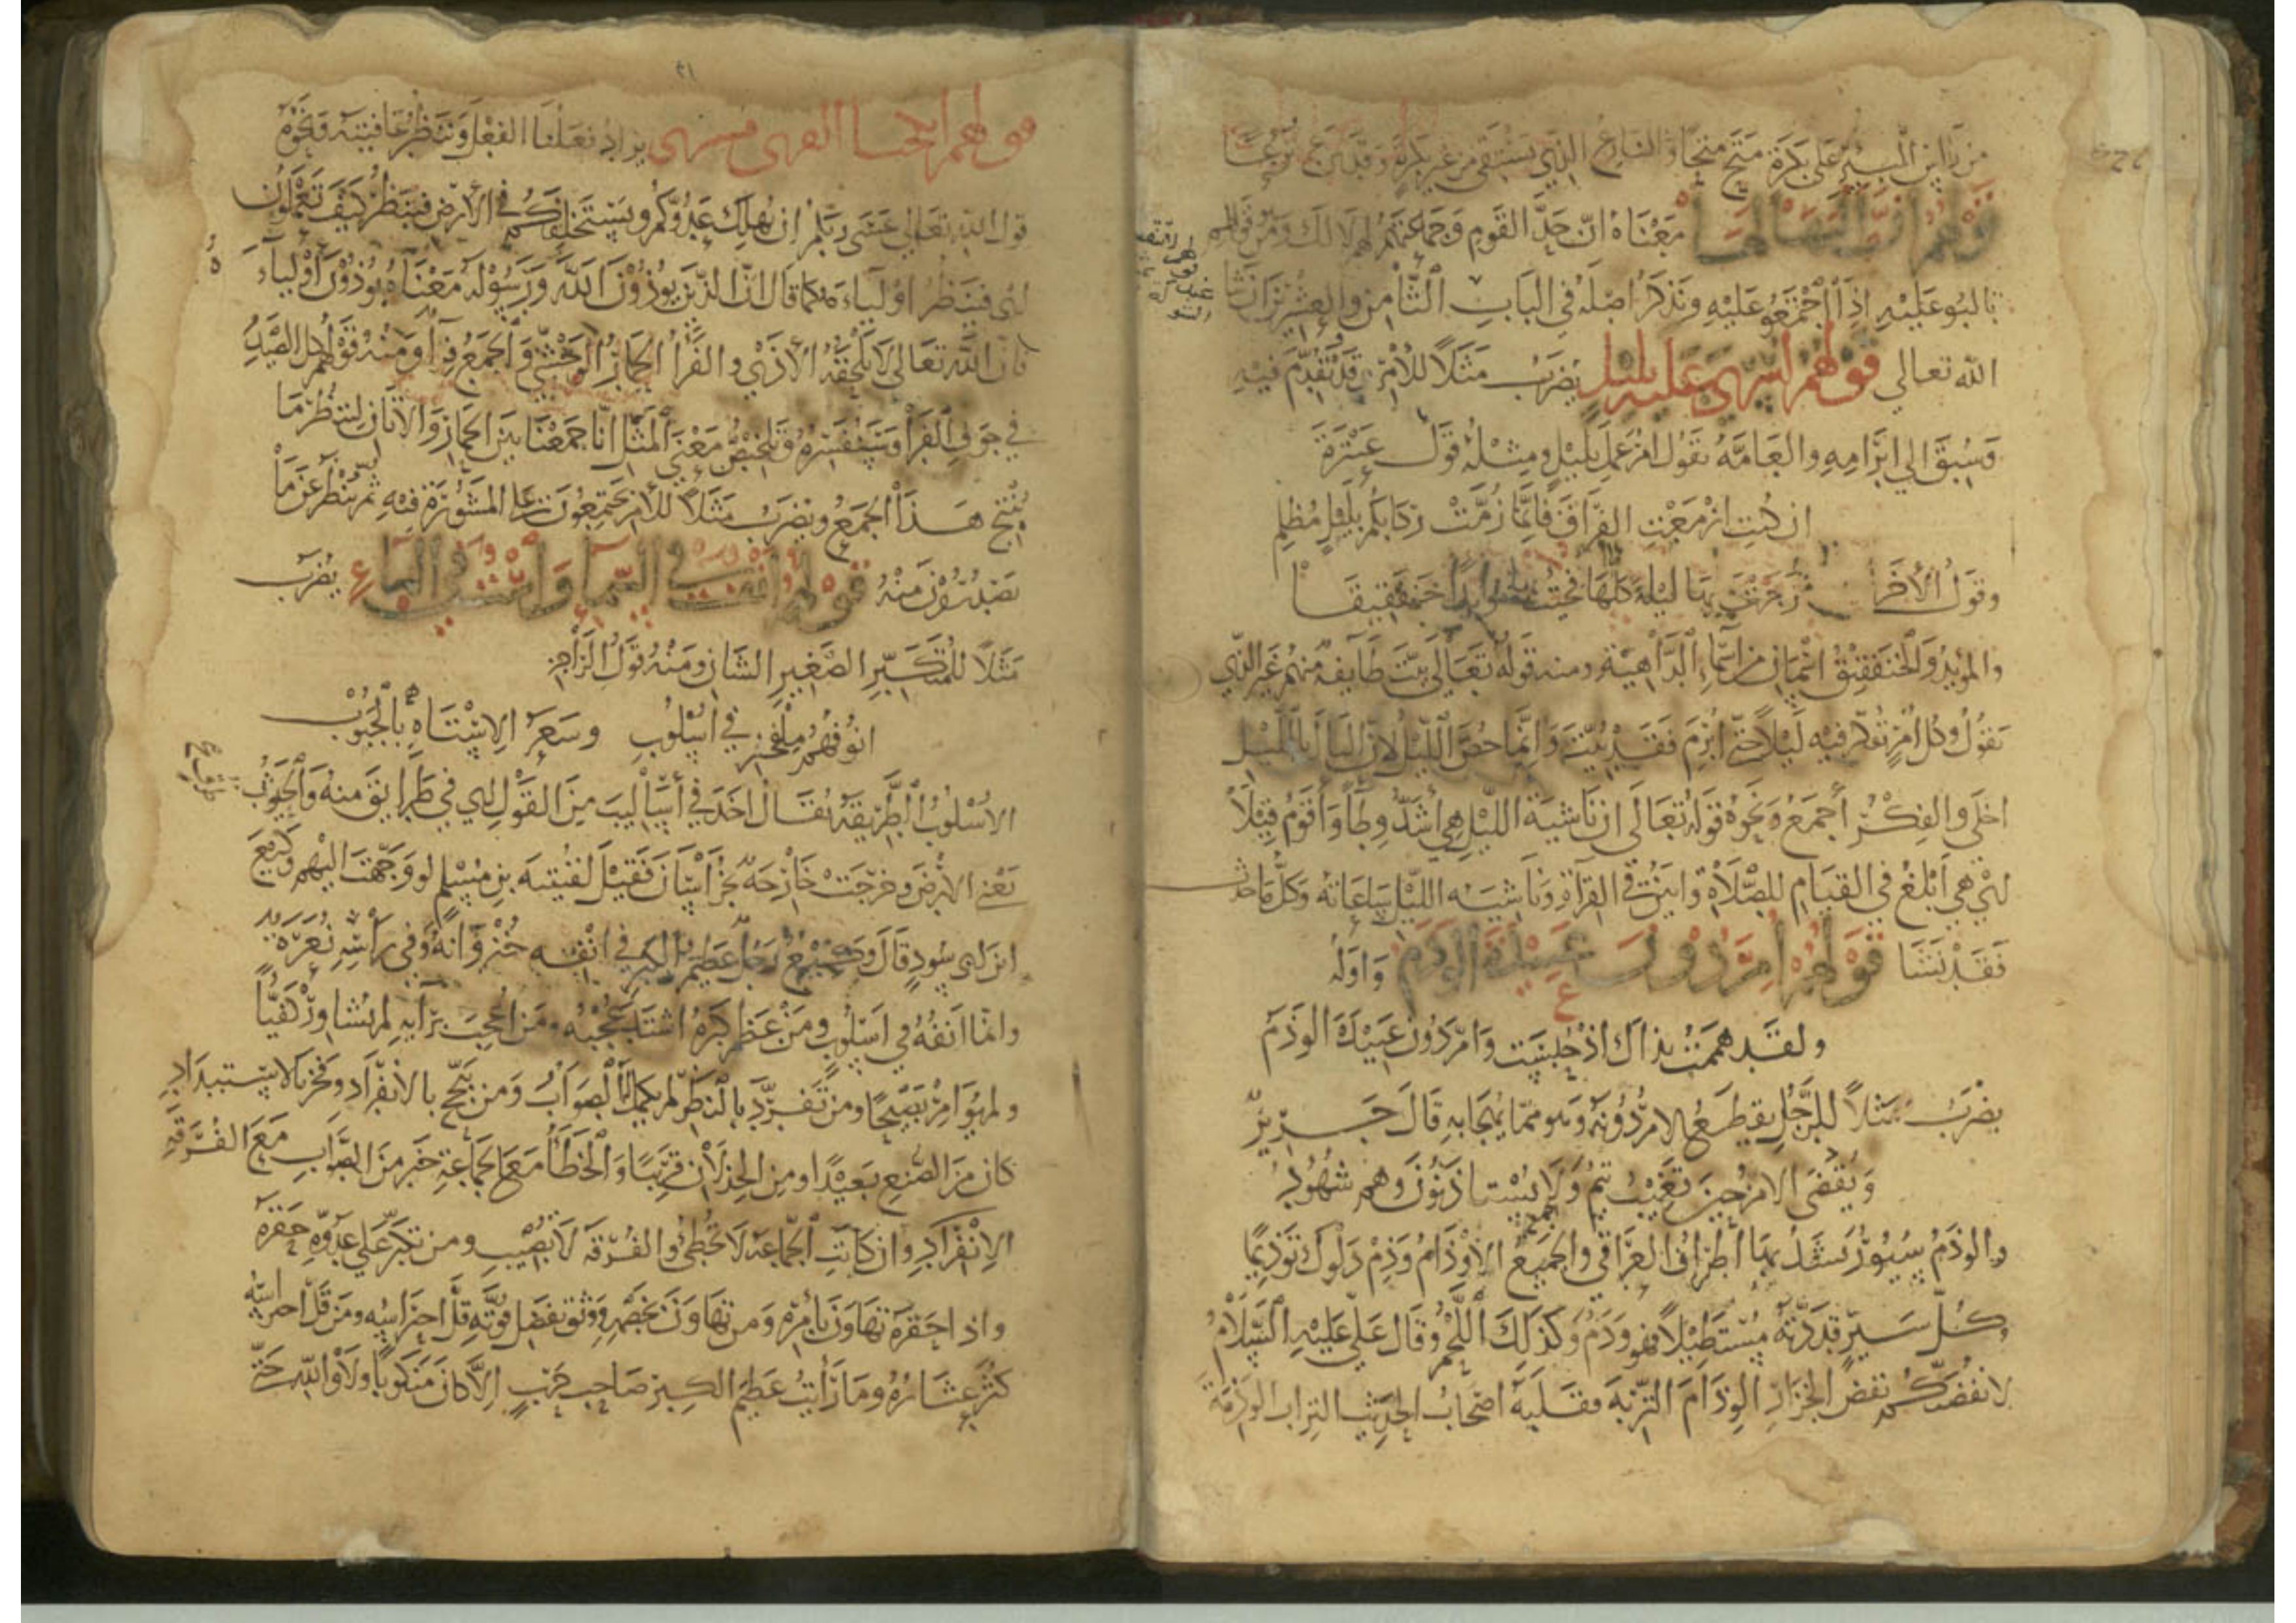 من رأس البئر على بكرة متح متحا والنازع الذي يستقي من غير بكرة وقد نزع نزعا
قولهم ان القوم معناه ان جد القوم وجماعتهم لهم لا لك ومن قولهم
تالبوا عليه اذا اجتمعوا عليه ونذكر اصله في الباب الثامن والعشرين ان شا
الله تعالى قولهم اسرى عليه بليل يضرب مثلا للامر قد تقدم فيه
وسبق الى ابرامه والعامة تقول امر عمل بليل ومثله قول عنترة
ان كنت ازمعت الفراق فانما زمت ركابكم بليل مظلم
وقول الاخر زجرت بها ليلة كلها فجئت بها مؤيدا خنفقيقا
والمؤيد والخنفقيق اسمان من اسماء الداهية ومنه قوله تعالى بيت طايفة منهم غير الذي
تقول وكل امر تفكر فيه ليلا حتى ابرم فقد بيت وانما خص الليل لان البال بالليل
اخلى والفكر اجمع ونحوه قوله تعالى ان ناشية الليل هي اشد وطأ واقوم قيلا
اي هي ابلغ في القيام للصلاة وابين في القرآة وناشية الليل ساعاته وكل ما حدث
فقد نشا قولهم امر دون عبيدة الوذم واوله
ولقد هممت بذاك اذ حبست وامر دون عبيدة الوذم
يضرب مثلا للرجل يقطع الامر دونه وهو مما يهجا به قال جرير
ويقضى الامر حين تغيب تيم ولا يستاذنون وهم شهود
والوذم سيور تشد بها اطراف العراقي والجميع الاوذام وذم دلوك توذيما
وكل سير قددته مستطيلا فهو وذم وكذلك اللحم وقال علي عليه السلام
لانفضنكم نفض الجزار الوذام التربة فقلبه اصحاب الحديث التراب الوذمة
٢١
قولهم انكحنا الفرى فسنرى يراد فعلنا الفعل وننظر عاقبته ونحوه
قول الله تعالى عسى ربكم ان يهلك عدوكم ويستخلفكم في الارض فينظر كيف تعملون
اي فينظر اولياءه كما قال ان الذين يوذون الله ورسوله معناه يوذون اولياءه
لان الله تعالى لا يلحقه الاذى والفرأ الحمار الوحشي والجمع فرآ ومنه قولهم كل الصيد
في جوف الفرأ وسنفسره وتلخيص معنى المثل انا جمعنا بين الحمار والاتان لننظر ما
ينتج هذا الجمع ويضرب مثلا للامر يجتمعون على المشورة فيه ثم ينظر عن ما
يصدرون منه قولهم انف في السما واست في الماء يضرب
مثلا للمتكبر الصغير الشان ومنه قول الراجز
انوفهم ملفخر في اسلوب وشعر الاستاه بالجبوب
الاسلوب الطريقة يقال اخذ في اساليب من القول اي في طرايق منه والجبوب
يعني الارض وخرجت خارجة بخراسان فقيل لقتيبة بن مسلم لو وجهت اليهم وكيع
ابن ابي سود قال وكيع رجل عظيم الكبر في انفه خنزوانة وفي راسه نعرة
وانما انفه في اسلوب ومن عظم كبره اشتد عجبه ومن اعجب برايه لم يشاور كفيا
ولم يوامر نصيحا ومن تفرد بالنظر لم يكمل له الصواب ومن تبجح بالانفراد وفخر بالاستبداد
كان من الصنع بعيدا ومن الخذلان قريبا والخطأ مع الجماعة خير من الصواب مع الفرقة
الانفراد وان كانت الجماعة لا تخطئ والفرقة لا تصيب ومن تكبر على عدوه حقره
واذا حقره تهاون بامره ومن تهاون بخصمه ووثق بفضل قوته قل احتراسه ومن قل احتراسه
كثر عثاره وما رأيت عظيم الكبر صاحب حرب الا كان منكوبا ولا والله حتى